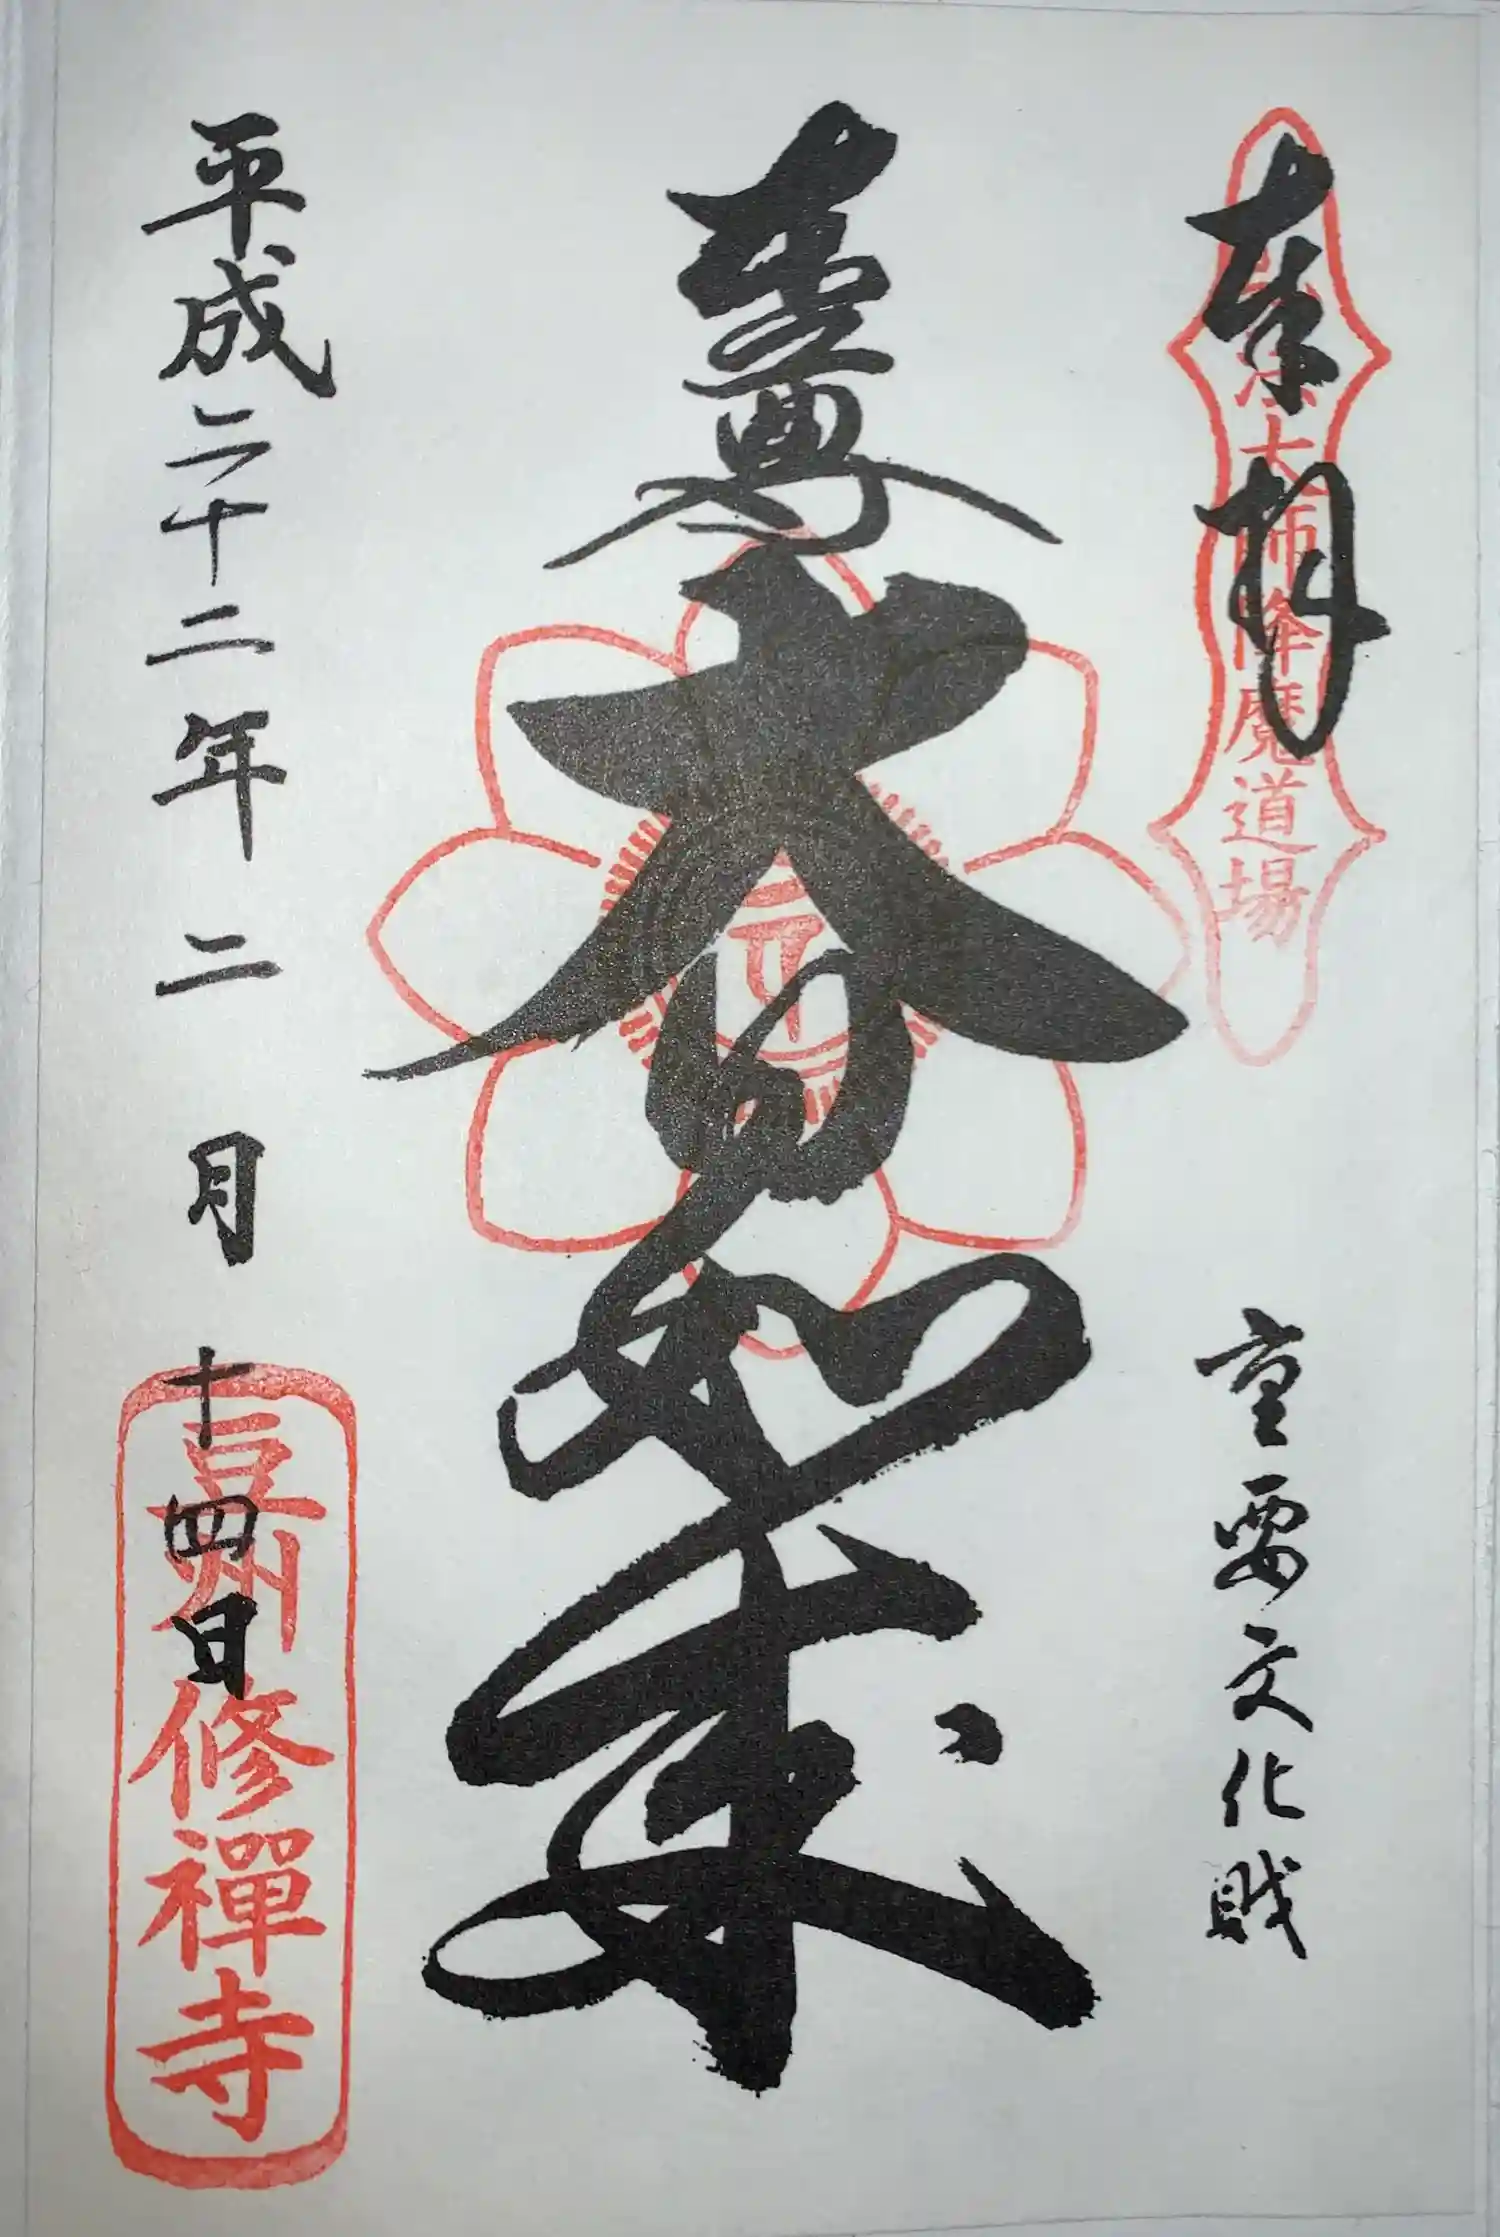 奉拝
法大師降魔道場
重要文化財
尊大日如来
平成二十二年二月十四日
豆州修禪寺